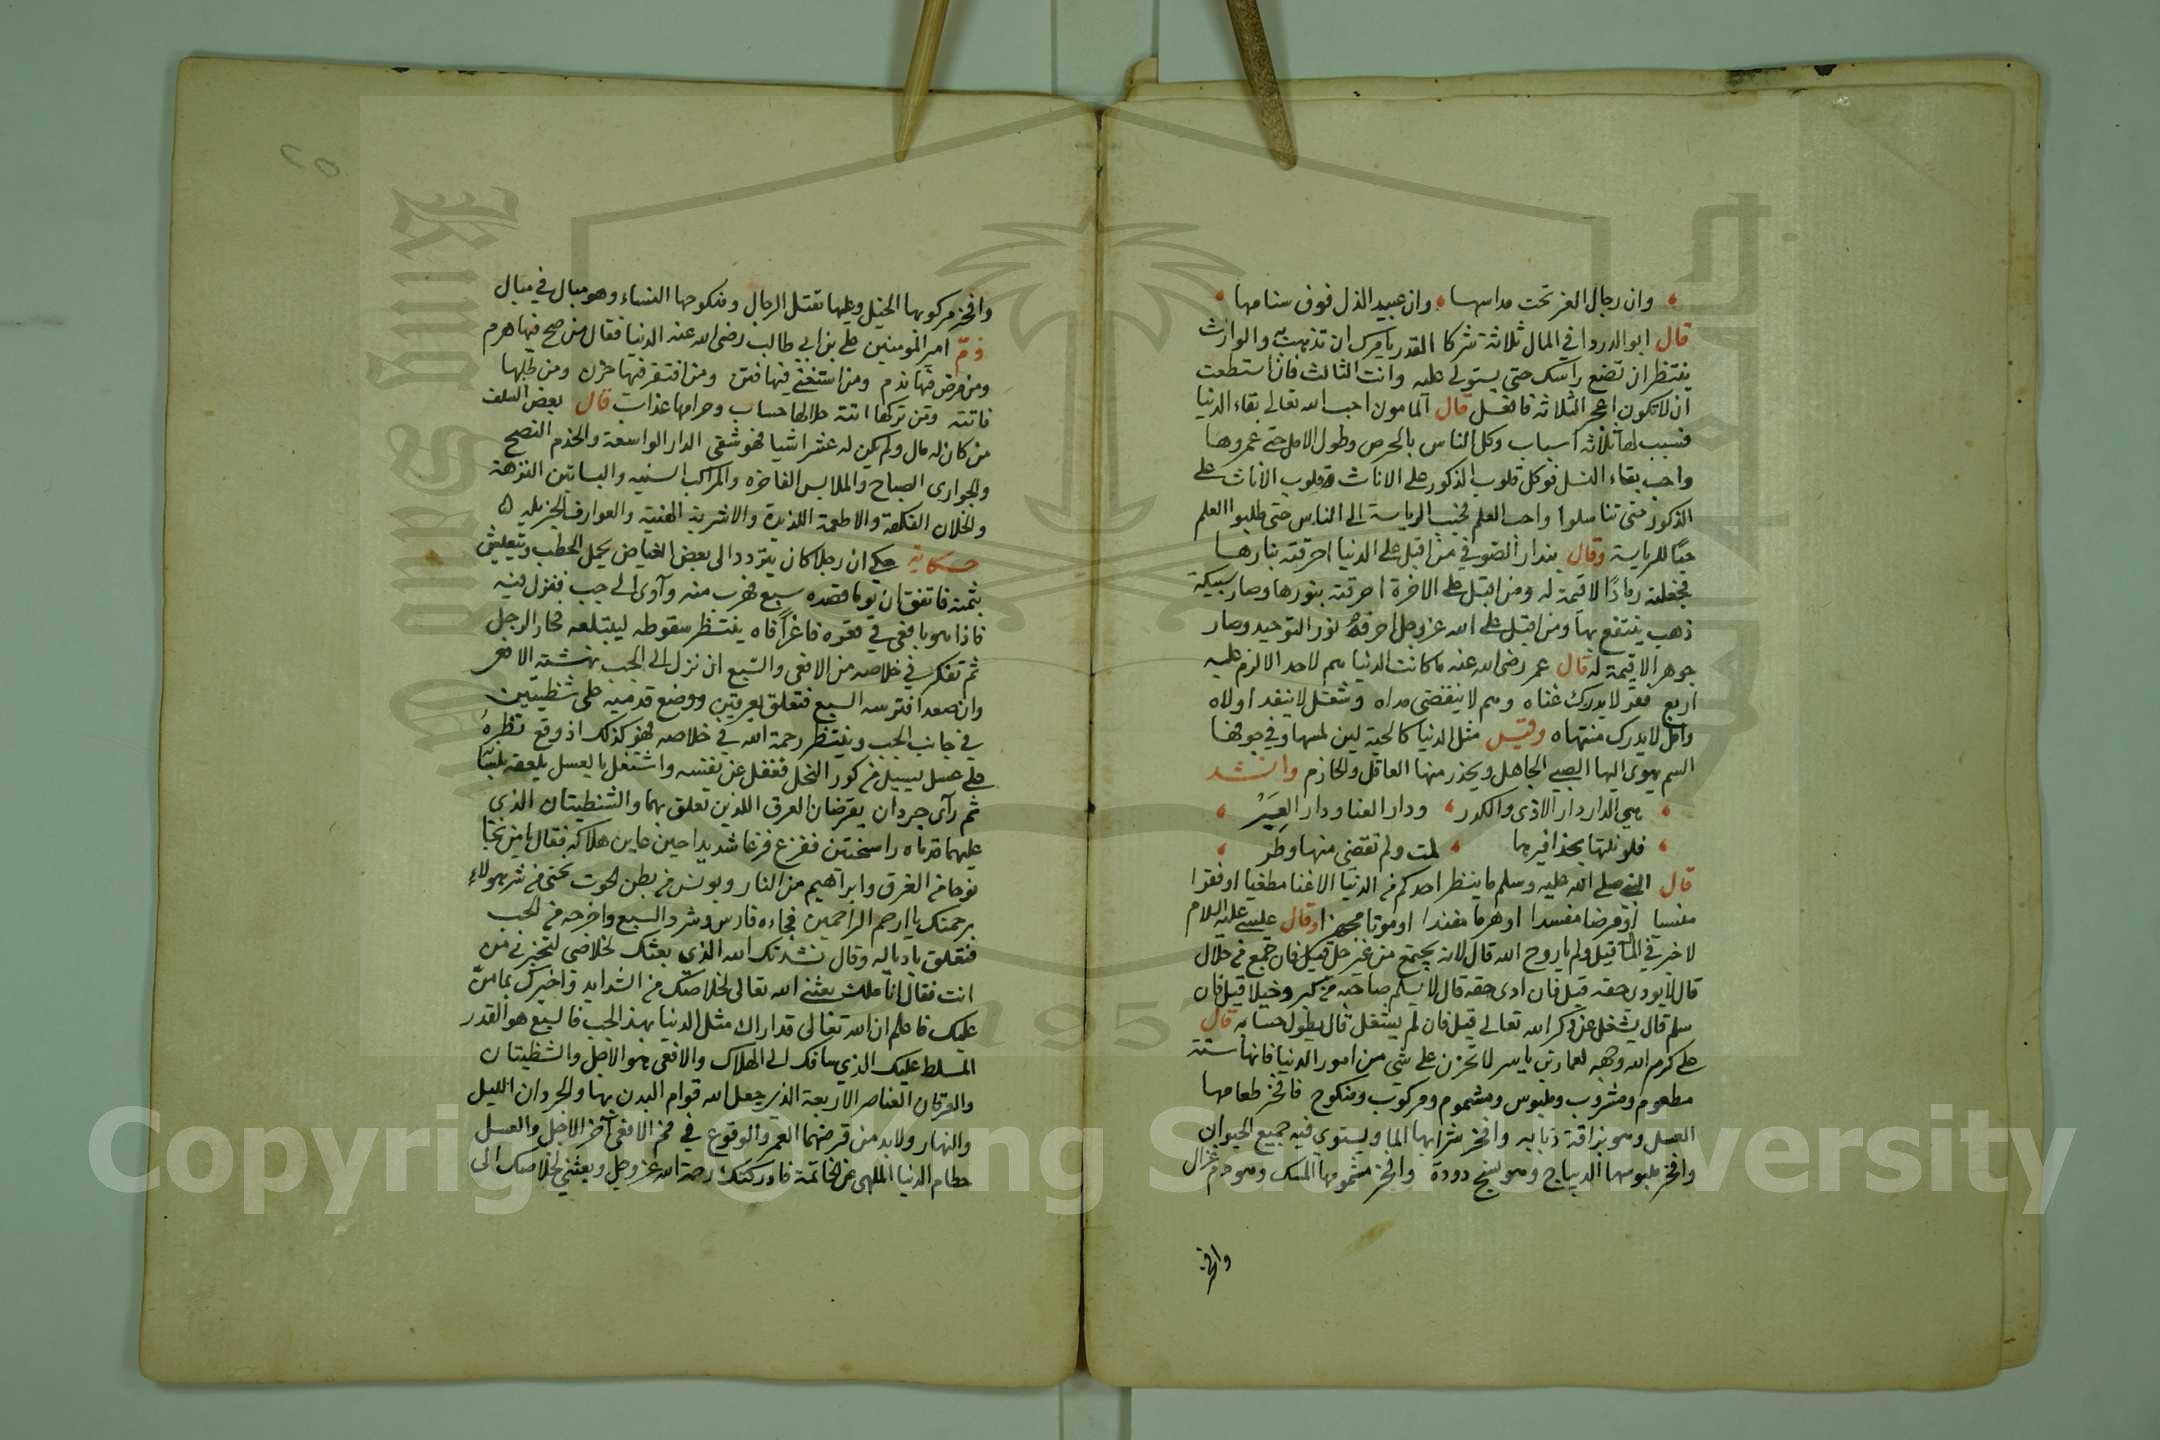 وان رجال العز تحت مداسها وان عبيد الذل فوق سنامها
قال ابو الدردا في المال ثلاثة شركا القدر يامرك ان تذهب به والوارث
ينتظر ان تضع راسك حتى يستولي عليه وانت الثالث فان استطعت
ان لا تكون اعجز الثلاثة فافعل قال المامون احب الله تعالى بقاء الدنيا
فسبب لها ثلاثة اسباب وكل الناس بالحرص وطول الامل حتى عمروها
واحب بقاء النسل فوكل قلوب الذكور على الاناث وقلوب الاناث على
الذكور حتى تناسلوا واحب العلم فحبب الرياسة الى الناس حتى طلبوا العلم
حبا للرياسة وقال بندار الصوفي من اقبل على الدنيا احرقته بنارها
فجعلته رمادا لا قيمة له ومن اقبل على الاخرة احرقته بنورها وصار سبيكة
ذهب ينتفع بها ومن اقبل على الله عز وجل احرقه نور التوحيد وصار
جوهرا لا قيمة له قال عمر رضى الله عنه ما كانت الدنيا هم لاحد الا لزم عليه
اربع فقر لا يدرك غناه وهم لا ينقضي مداه وشغل لا ينفد اولاه
وامل لا يدرك منتهاه وقيل مثل الدنيا كالحية لين لمسها وفي جوفها
السم يهوى اليها الصبي الجاهل ويحذر منها العاقل والحازم وانشد
هي الدار دار الاذى والكدر ودار العنا ودار العبر
فلو نلتها بحذافيرها لمت ولم تقضى منها وطر
قال النبي صلى الله عليه وسلم ما ينتظر احدكم من الدنيا الا غنا مطغيا او فقرا
منسيا او مرضا مفسدا او هرما مفندا او موتا مجهزا وقال عيسى عليه السلام
لا خير في المال قيل ولم يا روح الله قال لانه يجتمع من غير حل قيل فان جمع من حلال
قال لا يودى حقه قيل فان ادى حقه قال لا يسلم صاحبه من كبر وخيلا قيل فان
سلم قال يشغل عن ذكر الله تعالى قيل فان لم يشتغل قال يطول حسابه قال
على كرم الله وجهه لعمار بن ياسر لا تحزن على شي من امور الدنيا فانها ستة
مطعوم ومشروب وملبوس ومشموم ومركوب ومنكوح فافخر طعامها
العسل وهو بزاقة ذبابه وافخر شرابها الما ويستوي فيه جميع الحيوان
وافخر ملبوسها الديباج وهو نسج دودة وافخر مشمومها المسك وهو دم غزال
وافخر
وافخر مركوبها الخيل وعليها تقتل الرجال ومنكوحها النساء وهو مبال في مبال
ذم امير المومنين علي بن ابي طالب رضى الله عنه الدنيا فقال من صح فيها هرم
ومن مرض فيها ندم ومن استغنى فيها فتن ومن افتقر فيها حزن ومن طلبها
فاتته ومن تركها اتته حلالها حساب وحرامها عذاب قال بعض السلف
من كان له مال ولم يكن له عشر اشيا فهو شقى الدار الواسعة والخدم النصح
والجوارى الصباح والملابس الفاخره والمراكب السنيه والبساتين النزهة
والخلان الفكهة والاطعمة اللذيذة والاشربة الهنية والعوارف الجزيله
حكاية حكي ان رجلا كان يتردد الى بعض الغياض يحمل الحطب ويتعيش
بثمنه فاتفق ان يوما قصده سبع فهرب منه وآوى الى جب فنزل فيه
فاذا هو بافعى في قعره فاغرا فاه ينتظر سقوطه ليبتلعه فحار الرجل
ثم تفكر في خلاصه من الافعى والسبع ان نزل الى الجب نهشته الافعى
وان صعد افترسه السبع فتعلق بعرقين ووضع قدميه على شظيتين
في جانب الجب وينتظر رحمة الله في خلاصه فهو كذلك اذ وقع نظره
على عسل يسيل من كور النحل فغفل عن نفسه واشتغل بالعسل يلعقه
ثم رآى جردان يقرضان العرق اللذين تعلق بهما والشظيتان الذي
عليهما قدماه راسختين ففزع فزعا شديدا حين عاين هلاكه فقال يا من نجا
نوحا من الغرق وابراهيم من النار ويونس من بطن الحوت نجني من شر هولاء
برحمتك يا ارحم الراحمين فجاءه فارس وشرد السبع واخرجه من الجب
فتعلق باذياله وقال نشدتك الله الذي بعثك لخلاصى لتخبرني من
انت فقال انا ملك بعثنى الله تعالى لخلاصك من الشدايد واخبرك بما من
عليك فاعلم ان الله تعالى قد اراك مثل الدنيا بهذا الجب فالسبع هو القدر
المسلط عليك الذي ساقك الى الهلاك والافعى هو الاجل والشظيتان
والعرقان العناصر الاربعة الذي جعل الله قوام البدن بها والجردان الليل
والنهار ولابد من قرضهما العمر والوقوع في فخ الافعى آخر الاجل والعسل
حطام الدنيا الملهى عن الخاتمة فادركتك رحمة الله عز وجل وبعثني لخلاصك الى
Copyright © King Saud University
King Saud University
1957